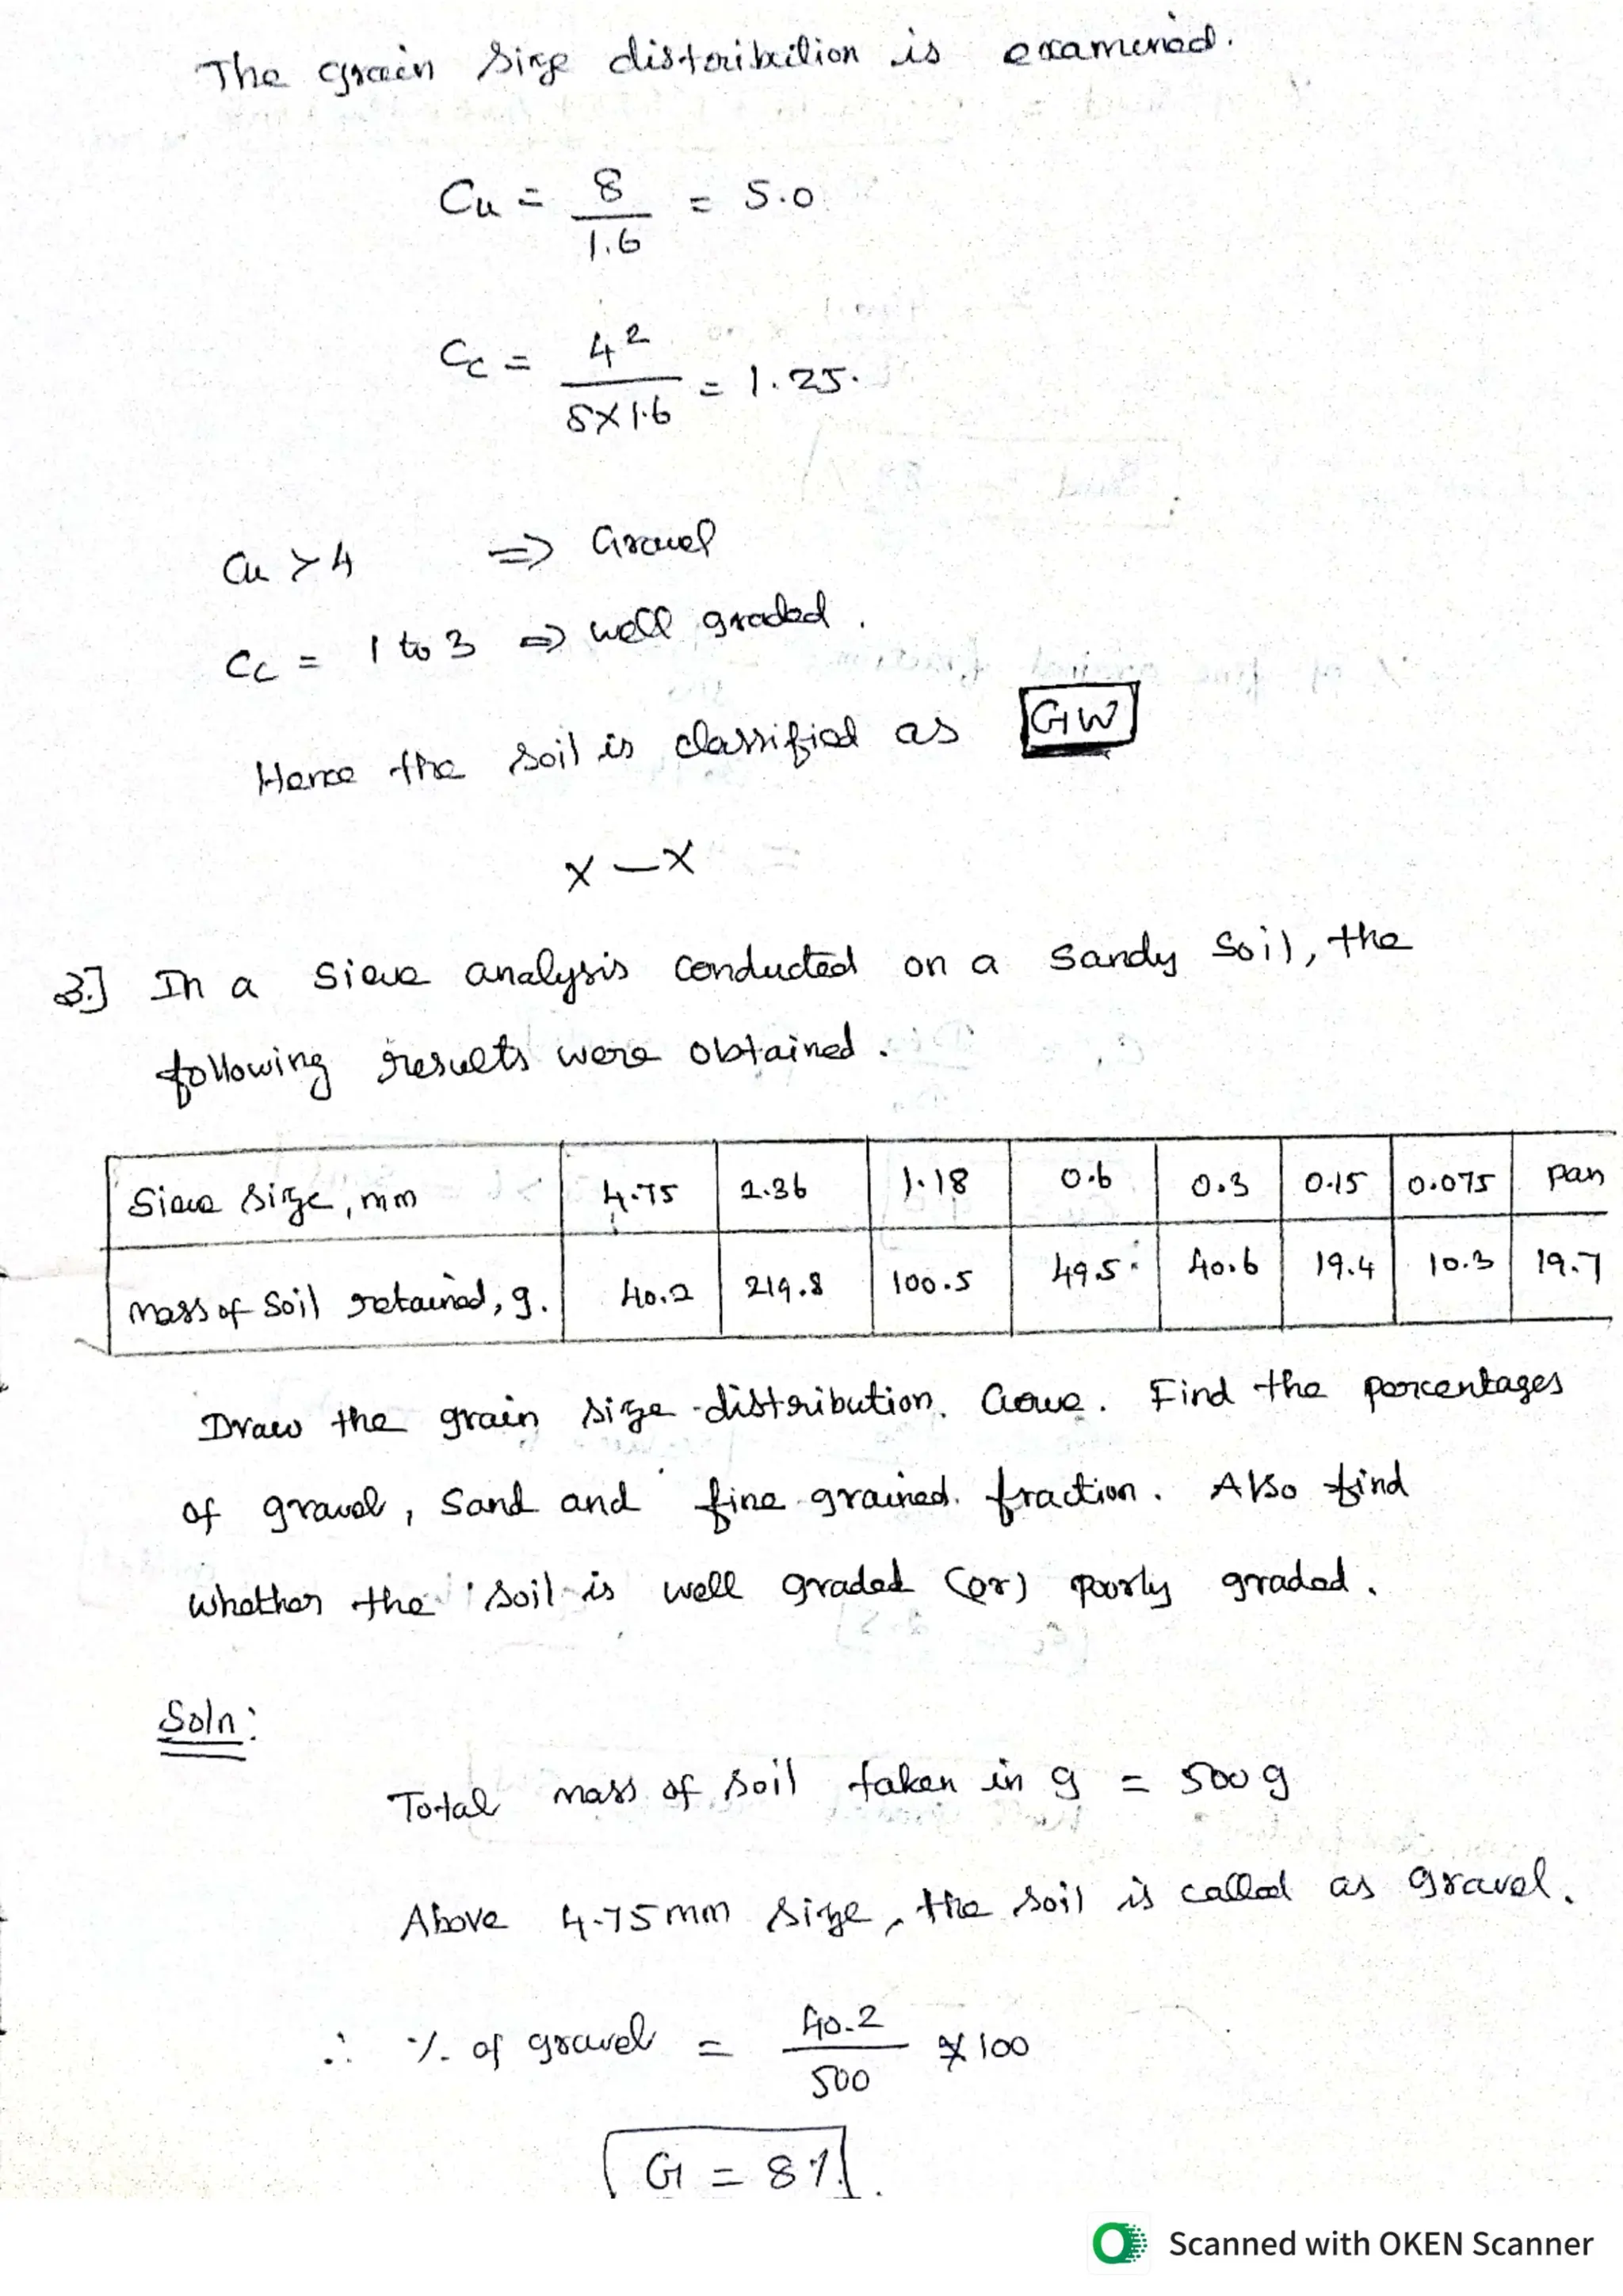 The grain size distribution is examined.
Cu = 8 / 1.6 = 5.0
Cc = 4² / 8×1.6 = 1.25.
Cu > 4 ⇒ Gravel
Cc = 1 to 3 ⇒ well graded.
Hence the soil is classified as GW
x — x
3.] In a Sieve analysis conducted on a sandy soil, the
following results were obtained.
Sieve size, mm 4.75 2.36 1.18 0.6 0.3 0.15 0.075 Pan
Mass of Soil retained, g. 40.2 219.8 100.5 49.5 40.6 19.4 10.3 19.7
Draw the grain size distribution. Curve. Find the percentages
of gravel, Sand and fine grained. fraction. Also find
whether the soil is well graded (or) poorly graded.
Soln:
Total mass of soil taken in g = 500 g
Above 4.75 mm size, the soil is called as gravel.
∴ % of gravel = 40.2 / 500 × 100
G = 8%.
Scanned with OKEN Scanner